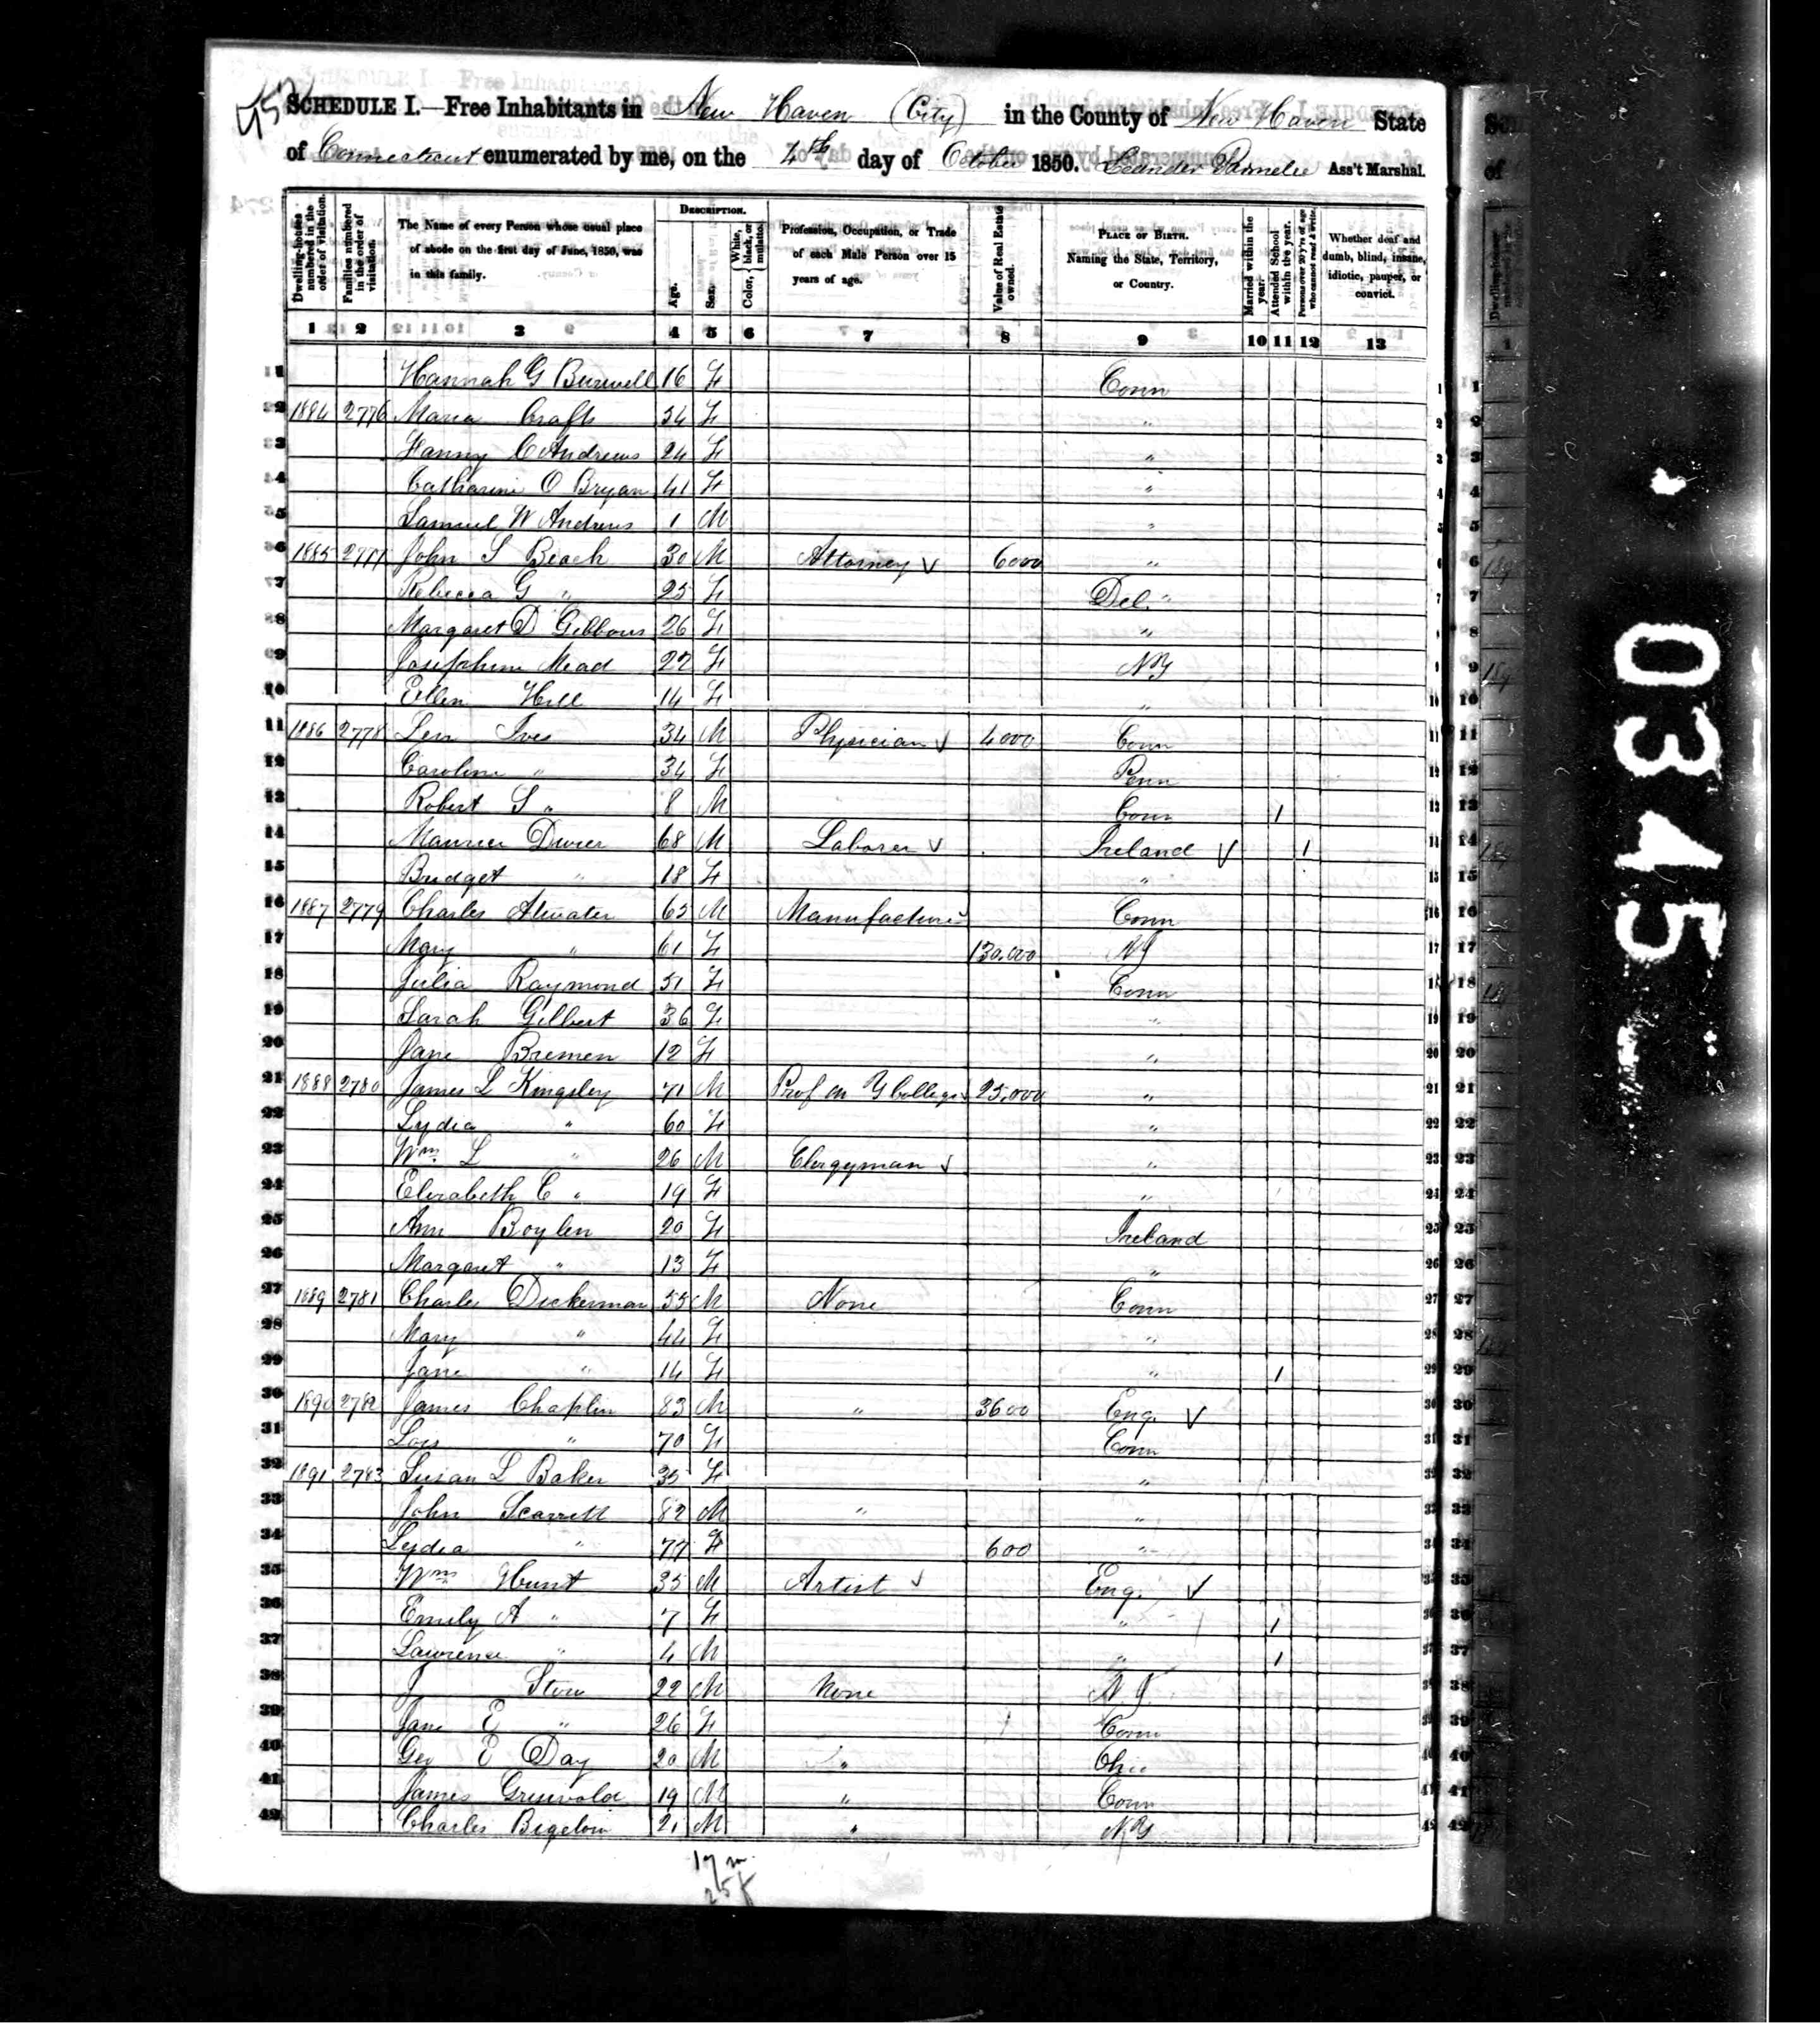 SCHEDULE I.—Free Inhabitants in New Haven (City) in the County of New Haven State
of Connecticut enumerated by me, on the 4th day of October 1850. Leander Parmelee Ass't Marshal.
Dwelling-houses numbered in the order of visitation.
Families numbered in the order of visitation.
The Name of every Person whose usual place of abode on the first day of June, 1850, was in this family.
DESCRIPTION.
Age.
Sex.
Color, White, black, or mulatto.
Profession, Occupation, or Trade of each Male Person over 15 years of age.
Value of Real Estate owned.
PLACE OF BIRTH. Naming the State, Territory, or Country.
Married within the year.
Attended School within the year.
Persons over 20 y'rs of age who cannot read & write.
Whether deaf and dumb, blind, insane, idiotic, pauper, or convict.
1 2 3 4 5 6 7 8 9 10 11 12 13
1 Hannah G Burwell 16 F Conn 1
2 1884 2776 Maria Crafts 54 F " 2
3 Fanny C Andrews 24 F " 3
4 Catharine O Bryan 41 F " 4
5 Samuel W Andrews 1 M " 5
6 1885 2777 John S Beach 30 M Attorney 6000 " 6
7 Rebecca G " 25 F Del. 7
8 Margaret D Gibbons 26 F " 8
9 Josephine Mead 22 F NY 9
10 Ellen Hill 14 F " 10
11 1886 2778 Levi Ives 34 M Physician 4000 Conn 11
12 Caroline " 34 F Penn 12
13 Robert S " 8 M Conn 1 13
14 Maurice Dwier 68 M Laborer Ireland 1 14
15 Bridget " 18 F " 15
16 1887 2779 Charles Atwater 65 M Manufacturer Conn 16
17 Mary " 61 F 130,000 NJ 17
18 Julia Raymond 51 F Conn 18
19 Sarah Gilbert 36 F " 19
20 Jane Bremen 12 F " 20
21 1888 2780 James L Kingsley 71 M Prof in Y College 25,000 " 21
22 Lydia " 60 F " 22
23 Wm L " 26 M Clergyman " 23
24 Elizabeth C " 19 F " 24
25 Ann Boylen 20 F Ireland 25
26 Margaret " 13 F " 26
27 1889 2781 Charles Dickerman 55 M None Conn 27
28 Mary " 44 F " 28
29 Jane " 14 F " 1 29
30 1890 2782 James Chaplin 83 M " 3600 Eng. 30
31 Lois " 70 F Conn 31
32 1891 2783 Susan L Baker 35 F " 32
33 John Scarrett 82 M " " 33
34 Lydia " 77 F 600 " 34
35 Wm Hunt 35 M Artist Eng. 35
36 Emily A " 7 F " 1 36
37 Lawrence " 4 M " 1 37
38 J Stow 22 M None N.J. 38
39 Jane E " 26 F Conn 39
40 Geo E Day 20 M " Ohio 40
41 James Griswold 19 M " Conn 41
42 Charles Bigelow 21 M " NY 42
17 m.
25 f
0345